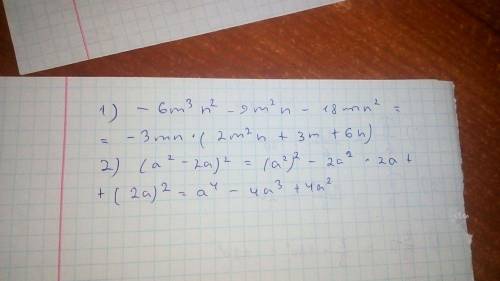 1) - 6m³n² - 9m²n - 18mn² =
= - 3mn · (2m²n + 3m + 6n)
2) (a² - 2a)² = (a²)² - 2a² · 2a +
+ (2a)² = a⁴ - 4a³ + 4a²